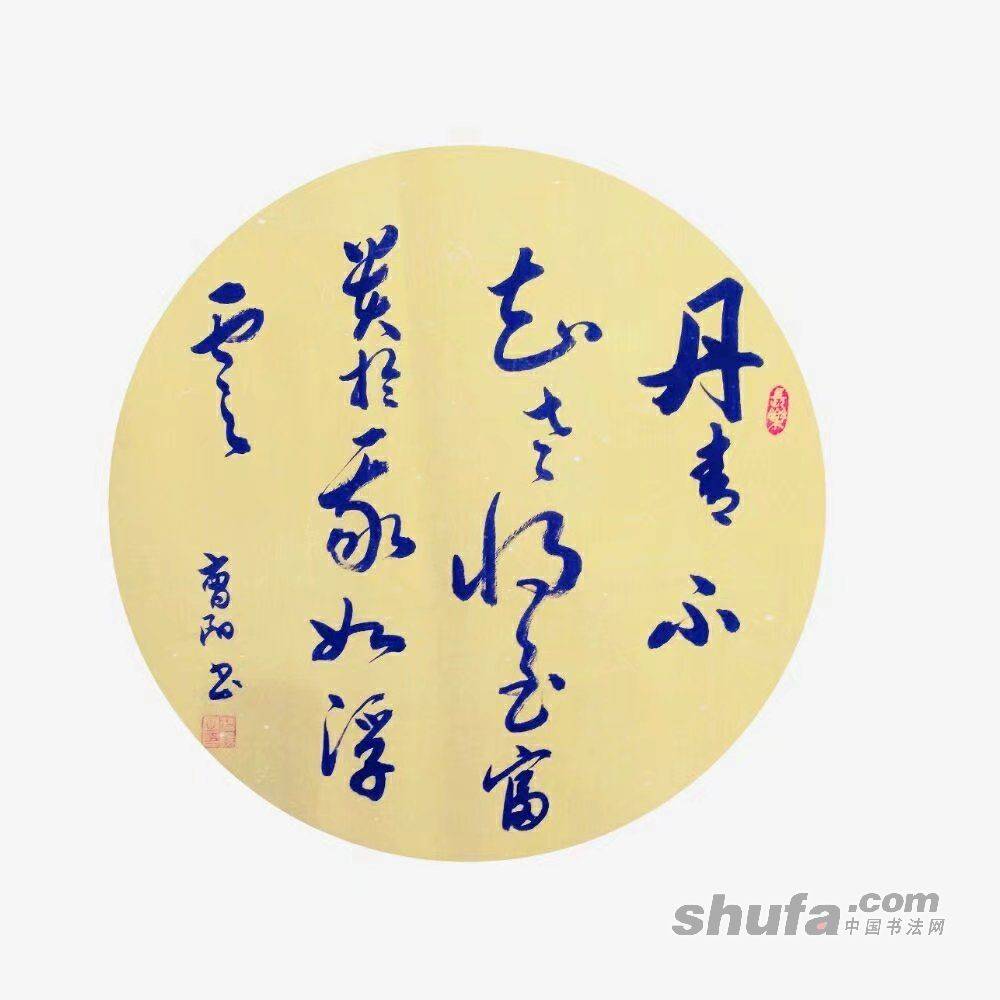 丹青不
知老将至富
貴於我如浮
雲
阳书
shufa.com
中国书法网